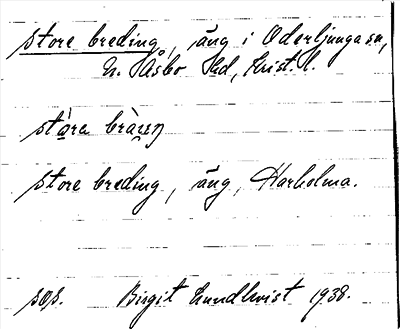 store breding, äng i Oderljunga sn,
N. Åsbo Hd, Krist. l.
store breding, äng, Harholma.
sps. Birgit Lundkvist 1938.